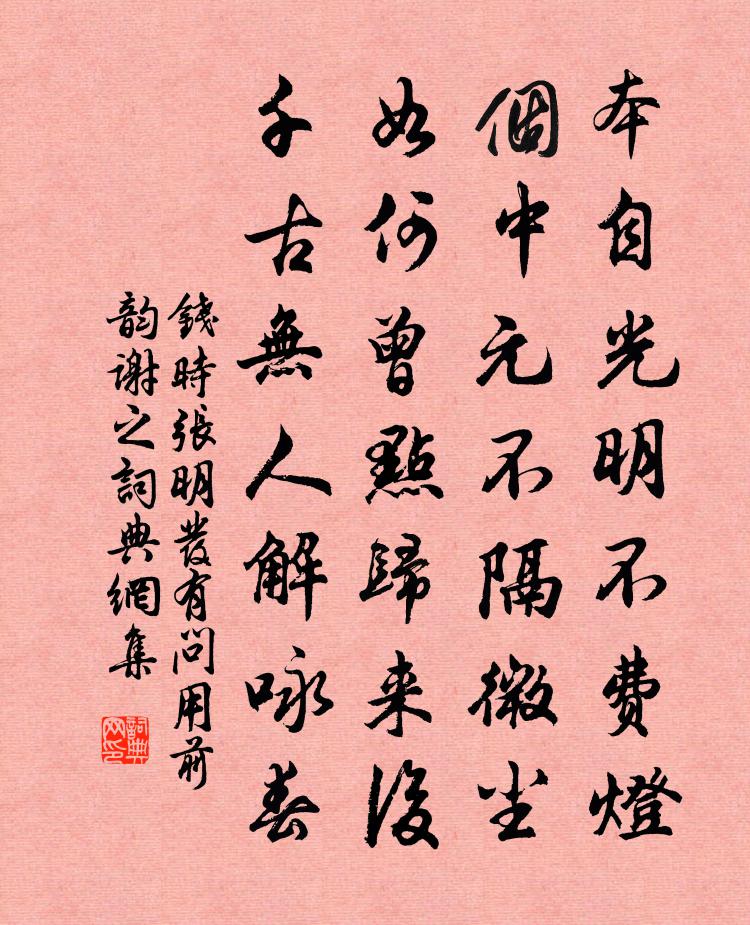 本自光明不費燈
個中元不隔微尘
如何曾點歸来後
千古無人解咏春
錢時張明發有問用前
韵謝之詞典網集
詞典
网印